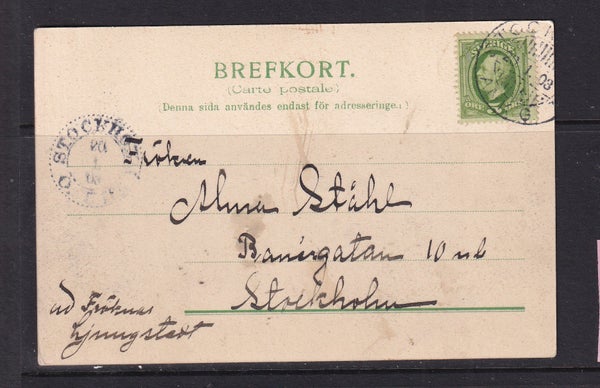 BREFKORT.
(Carte postale)
(Denna sida användes endast för adresseringen.)
SVERIGE
STOCKHOLM
Fröken
Alma Ståhl
Banérgatan 10 nb
Stockholm
ad Fröknas
Ljungstedt